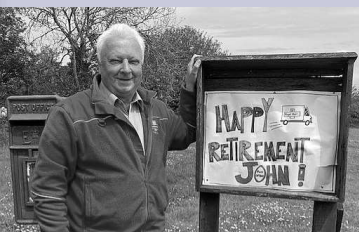 POST OFFICE
HAPPY
RETIREMENT
JOHN!